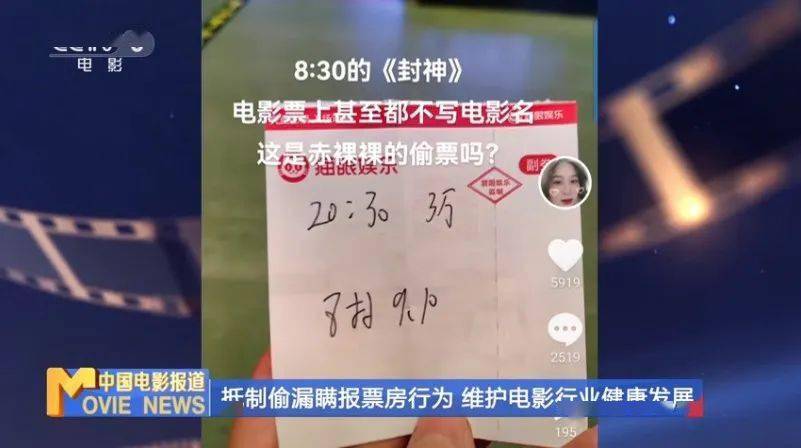 CCTV
电影
8:30的《封神》
电影票上甚至都不写电影名
这是赤裸裸的偷票吗?
猫眼娱乐
副券
20:30
5919
2519
195
中国电影报道
MOVIE NEWS
抵制偷漏瞒报票房行为 维护电影行业健康发展